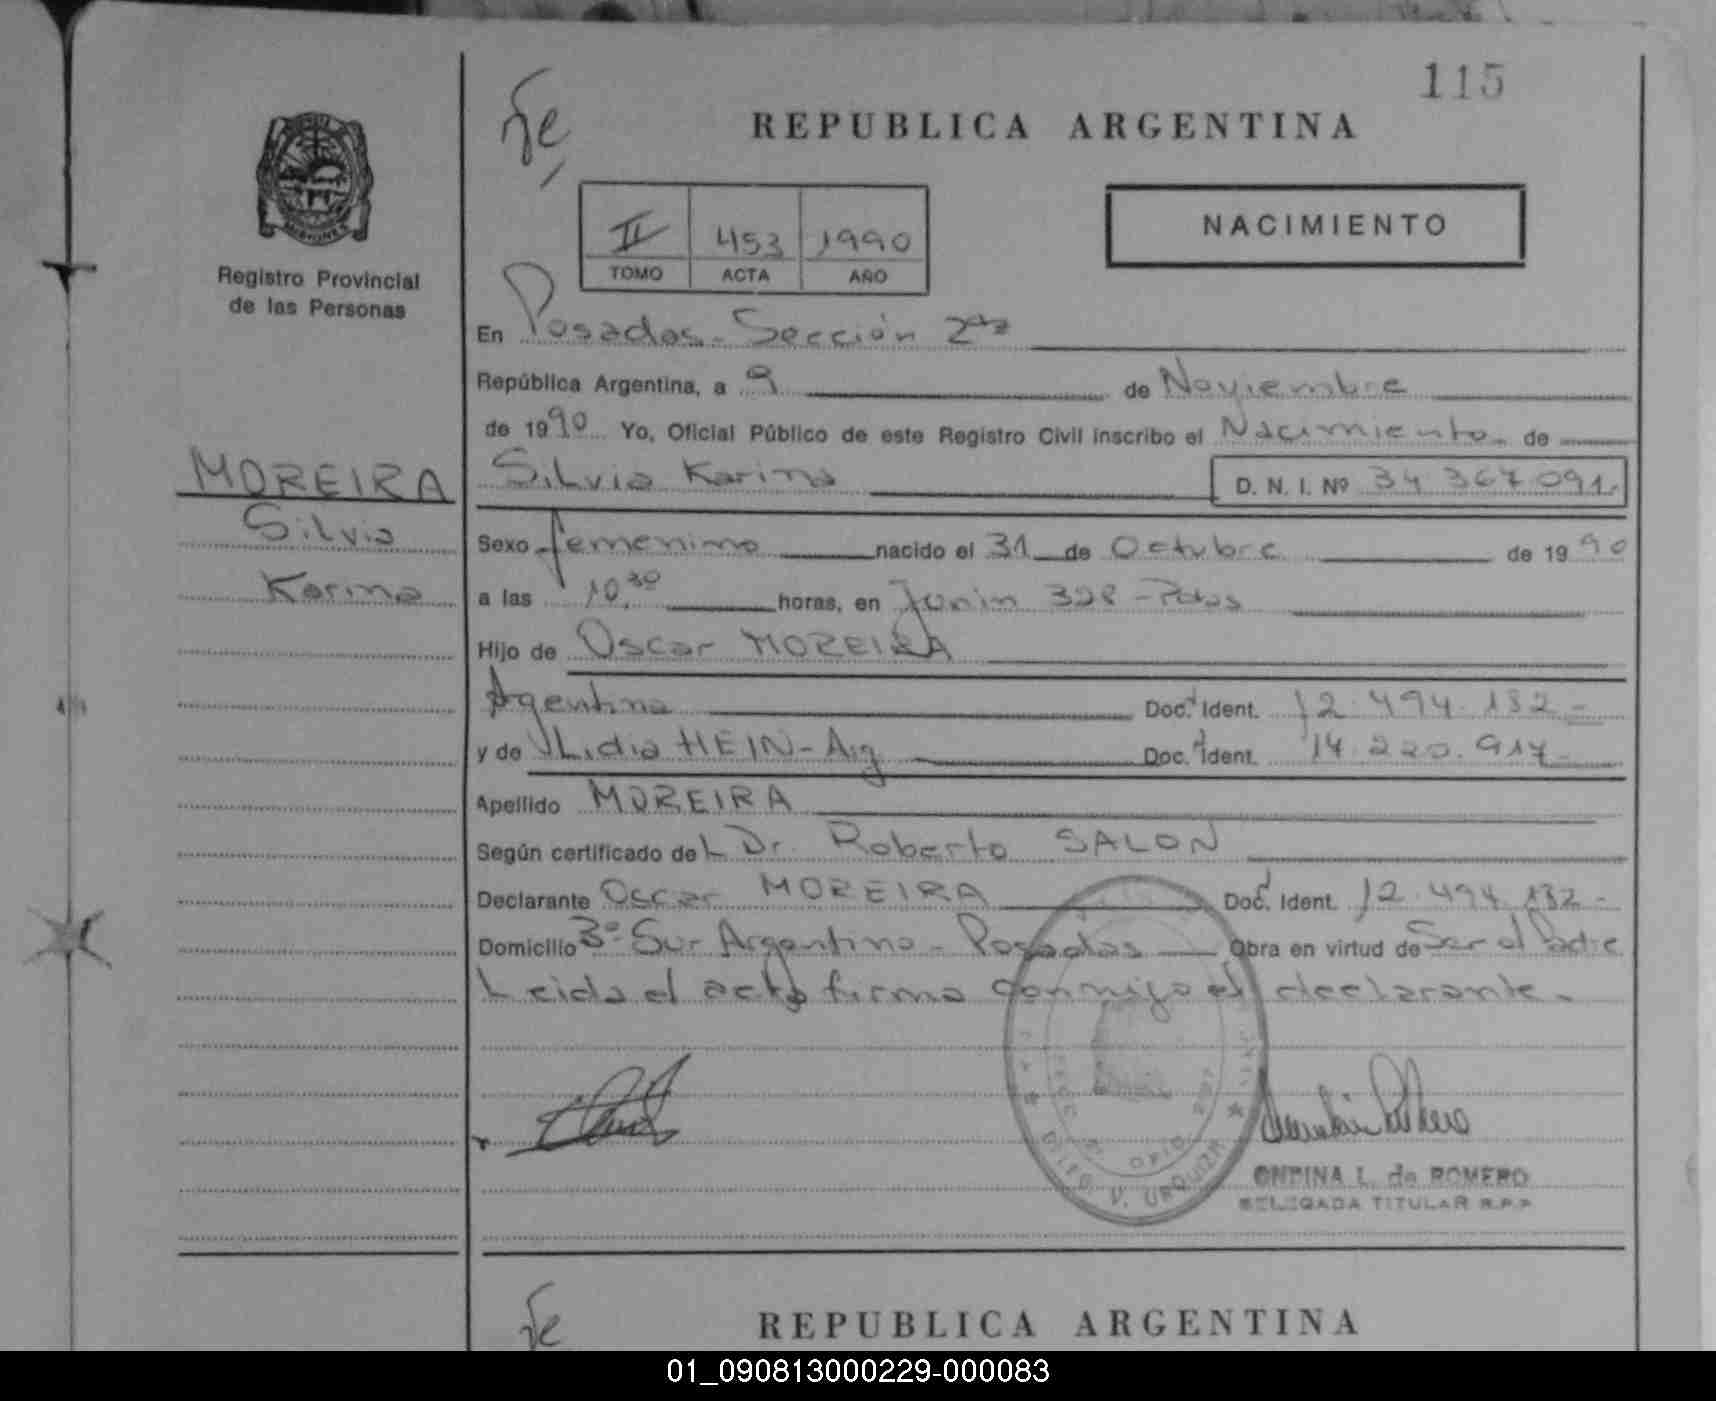 115
fe
REPUBLICA ARGENTINA
MISIONES
Registro Provincial
de las Personas
II 453 1990
TOMO ACTA AÑO
NACIMIENTO
En Posadas - Sección 2da
República Argentina, a 9 de Noviembre
de 1990 Yo, Oficial Público de este Registro Civil inscribo el Nacimiento de
MOREIRA
Silvia
Karina
Silvia Karina D. N. I. Nº 34 367 091
Sexo femenino nacido el 31 de Octubre de 1990
a las 10,30 horas, en Junin 328 - Pdas
Hijo de Oscar MOREIRA
Agentina Doc. Ident. 12.494.132 -
y de Lidia HEIN - Arg Doc. Ident. 14.220.917 -
Apellido MOREIRA
Según certificado del Dr. Roberto SALON
Declarante Oscar MOREIRA Doc. Ident. 12.494.132 -
Domicilio 3º Sur Argentino - Posadas Obra en virtud de Ser el Padre
Leida el acta firma conmigo el declarante.
V. URQUIZA
ONDINA L. de ROMERO
DELEGADA TITULAR R.P.P
fe
REPUBLICA ARGENTINA
01_090813000229-000083